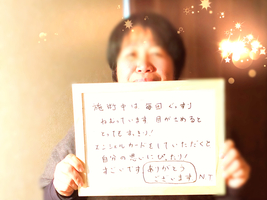 施術中は毎回ぐっすり
ねむっています 目がさめると
とってもすっきり!
エンジェルカードもしていただくと
自分の思いにぴったり!
すごいです ありがとう
ございます N.T